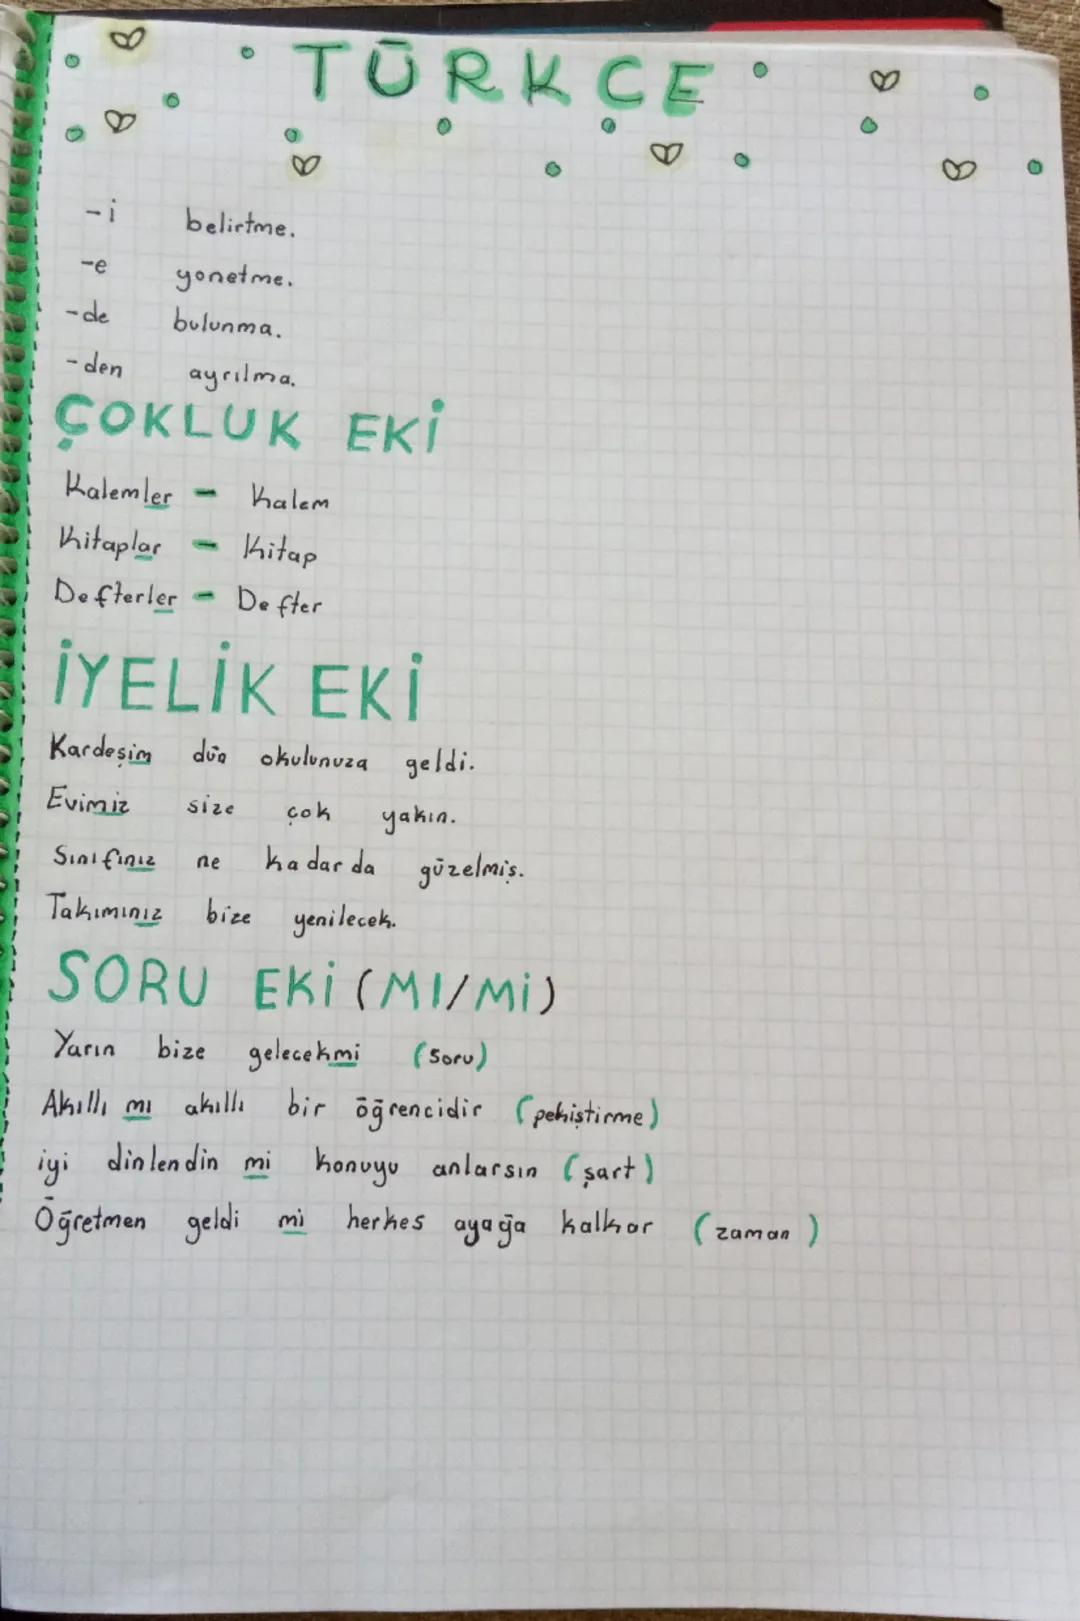 TÜRKCE
-i belirtme.
-e yonetme.
-de bulunma.
-den ayrılma.
ÇOKLUK EKİ
Kalemler - Kalem
Kitaplar - Kitap
Defterler - Defter
İYELİK EKİ
Kardeşim dün okulunuza geldi.
Evimiz size çok yakın.
Sınıfınız ne kadar da güzelmiş.
Takımınız bize yenilecek.
SORU EKİ (MI/Mİ)
Yarın bize gelecekmi (soru)
Akıllı mı akıllı bir öğrencidir (pekiştirme)
iyi dinlendin mi konuyu anlarsın (şart)
Öğretmen geldi mi herkes ayağa kalkar (zaman)